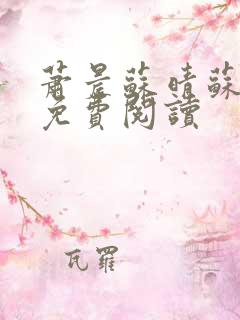 蕭景蘇晴蘇
免費閱讀
瓦羅